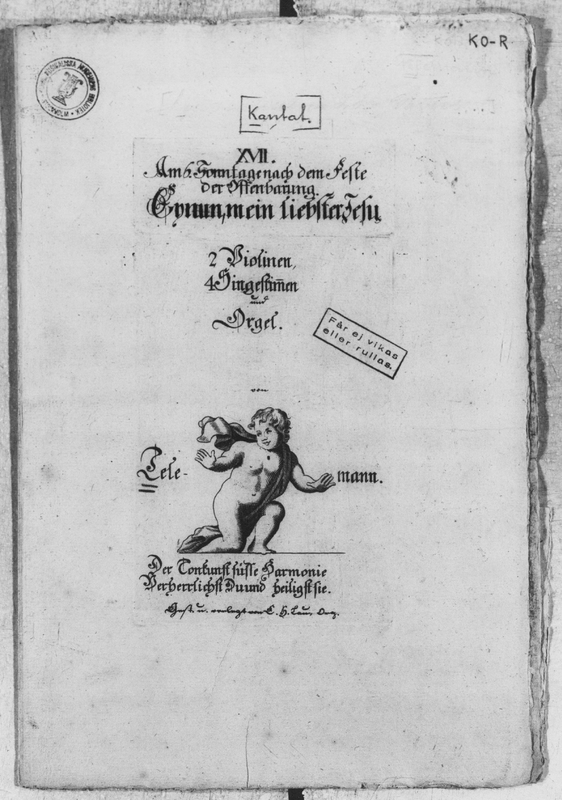 KO-R
Kantat.
XVII.
Am 5. Sonntage nach dem Feste
der Offenbarung.
Ey nun, mein liebster Jesu
2 Violinen,
4 Singestim̅en
und
Orgel.
Får ej vikas
eller rullas.
von
Tele-
mann.
Der Tonkunst süsse Harmonie
Verherrlichst Du und heiligst sie.
Gest. u. verlegt von C. H. Lau, Org.